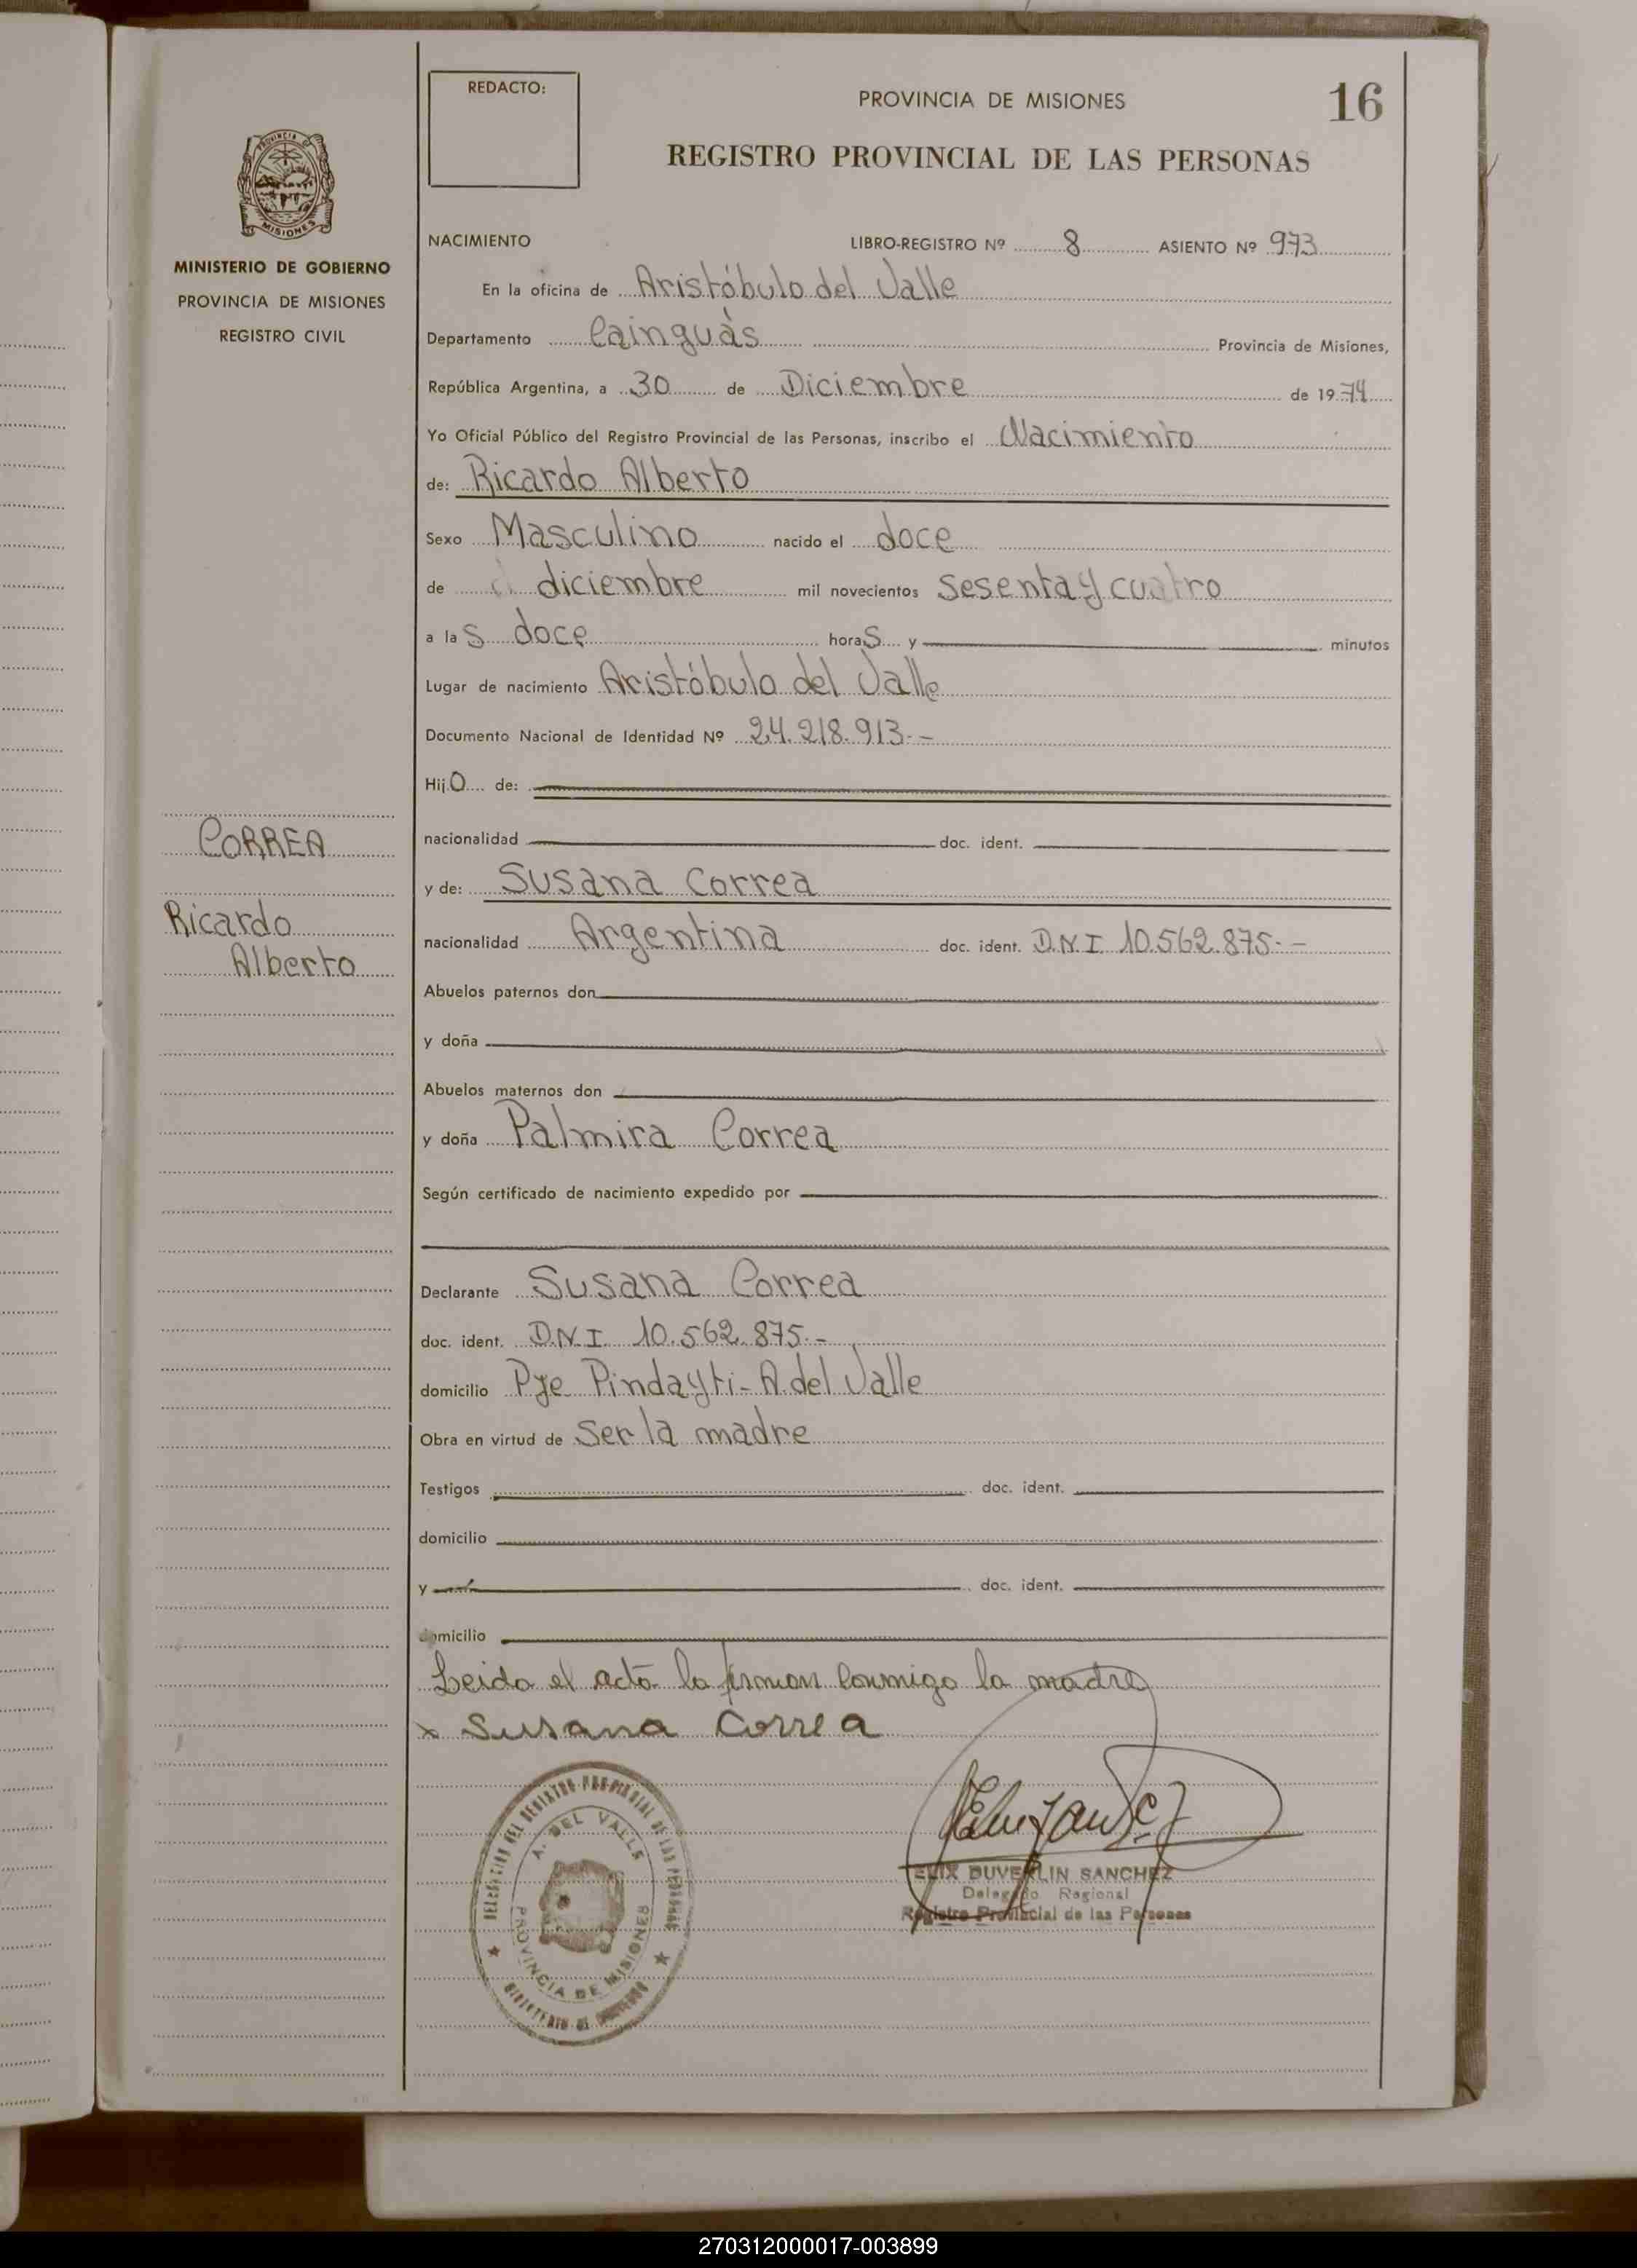 REDACTO:
PROVINCIA DE MISIONES
16
REGISTRO PROVINCIAL DE LAS PERSONAS
PROVINCIA DE
MISIONES
MINISTERIO DE GOBIERNO
PROVINCIA DE MISIONES
REGISTRO CIVIL
NACIMIENTO LIBRO-REGISTRO Nº 8 ASIENTO Nº 973
En la oficina de Aristóbulo del Valle
Departamento Cainguàs Provincia de Misiones,
República Argentina, a 30 de Diciembre de 1974
Yo Oficial Público del Registro Provincial de las Personas, inscribo el Nacimiento
de: Ricardo Alberto
Sexo Masculino nacido el doce
de diciembre mil novecientos Sesenta y cuatro
a las doce horas y minutos
Lugar de nacimiento Aristóbulo del Valle
Documento Nacional de Identidad Nº 24.218.913.-
Hijo de:
CORREA
nacionalidad doc. ident.
y de: Susana Correa
Ricardo
Alberto
nacionalidad Argentina doc. ident. D.N.I 10.562.875.-
Abuelos paternos don
y doña
Abuelos maternos don
y doña Palmira Correa
Según certificado de nacimiento expedido por
Declarante Susana Correa
doc. ident. D.N.I 10.562.875.-
domicilio Pje Pindayti- A. del Valle
Obra en virtud de Ser la madre
Testigos doc. ident.
domicilio
y doc. ident.
domicilio
Leida el acta la firman conmigo la madre
x Susana Correa
DELEGACION DEL REGISTRO PROVINCIAL DE LAS PERSONAS
A. DEL VALLE
PROVINCIA DE MISIONES
MINISTERIO DE
ELIX DUVERLIN SANCHEZ
Delegado Regional
Registro Provincial de las Personas
270312000017-003899